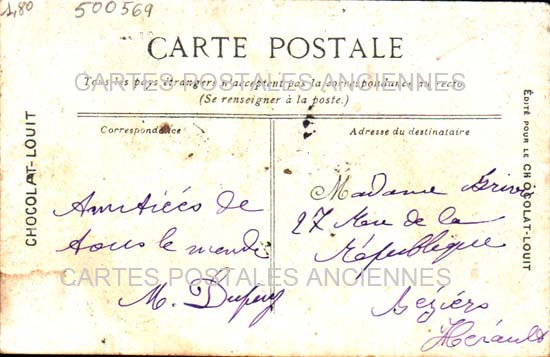 1,80
500569
CARTE POSTALE
Tous les pays étrangers n'acceptent pas la correspondance au recto
(Se renseigner à la poste.)
CARTES POSTALES ANCIENNES
Correspondance
Adresse du destinataire
CHOCOLAT-LOUIT
Amitiées de
tous le monde
M. Dupuy
Madame
27 Rue de la
République
Béziers
Hérault
CARTES POSTALES ANCIENNES
ÉDITÉ POUR LE CHOCOLAT-LOUIT